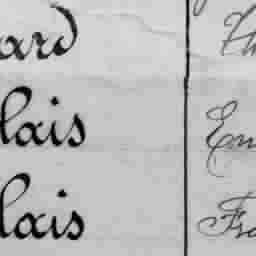 ard Th
lais Em
lais Fra